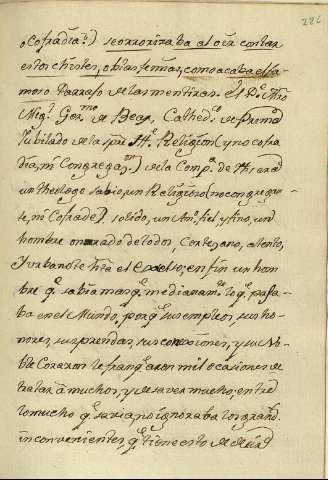 226
o Cofradia?) se orrorizaba al oir contar
estos chistes, o blasfemias, como acaba el fa-
moso tarrago de las mentiras. El P. Mro
Mig.l Ger.mo de Bear, Cathed.co de Prima
Jubilado de la sag.da Religion (y no cofra
dia, ni Congregaz.on) de la Comp.a de
un theologo sabio, un Religioso (no congregan-
te, ni Cofrade) solido, un fiel, y fino, un
hombre onrrado de todos, Cortesano, atento,
y urbano hasta el exceso; en fin un hom
bre q.e sabia mas q.e medianam.te lo q.e passa-
ba en el Mundo, porq.e sus empleos, sus ho-
nores, sus prendas, sus conexiones, y su No-
ble Corazon le franquearon mil ocasiones de
tratar à muchos, y de saver mucho; entre
lo mucho q.e savia, no ignoraba los grand.s
inconvenientes, q.e tiene esto de